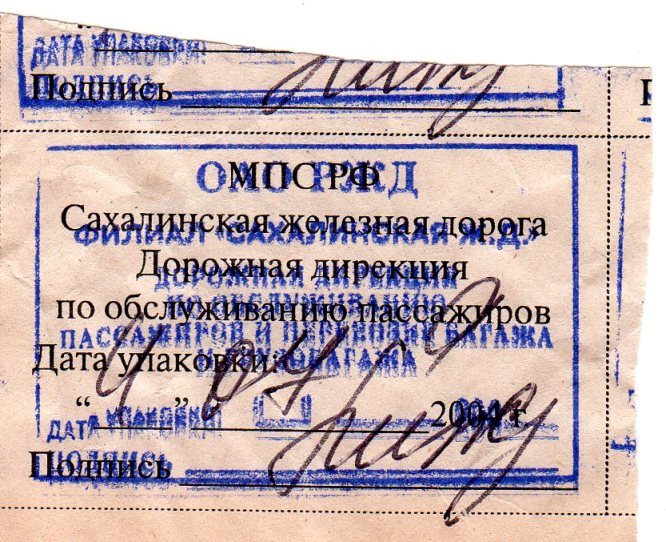 ДАТА УПАКОВКИ:
ПОДПИСЬ
Подпись
ОАО РЖД
МПС РФ
Сахалинская железная дорога
ФИЛИАЛ "САХАЛИНСКАЯ Ж.Д."
Дорожная дирекция
ДОРОЖНАЯ ДИРЕКЦИЯ
по обслуживанию пассажиров
ПО ОБСЛУЖИВАНИЮ
ПАССАЖИРОВ И ПЕРЕВОЗКИ БАГАЖА
Дата упаковки:
" " 2004 г.
ДАТА УПАКОВКИ:
Подпись
ПОДПИСЬ